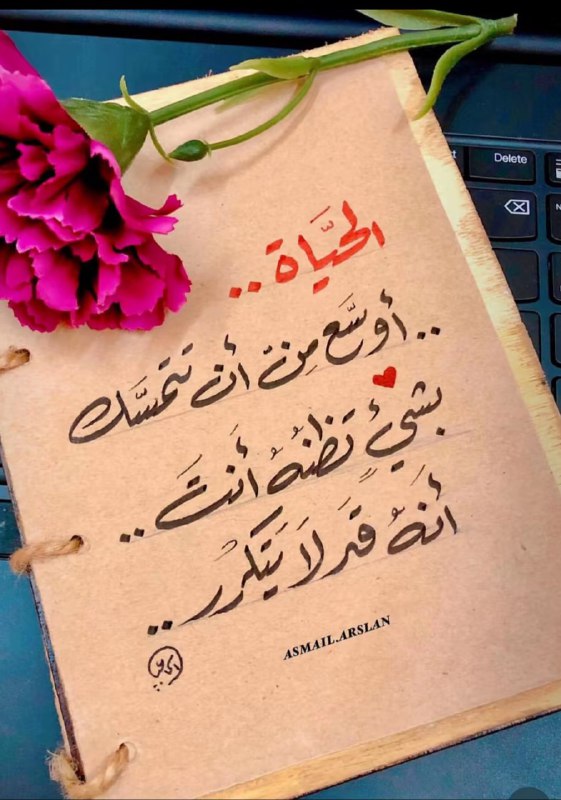 الحَيَّاة ..
.. أوسَّع مِنْ أن تتمسَّك
بشيءٍ تَظنُهُ أنتَ ..
أنَهُ قَد لاَ يَتكرُر ..
ASMAIL.ARSLAN
Delete